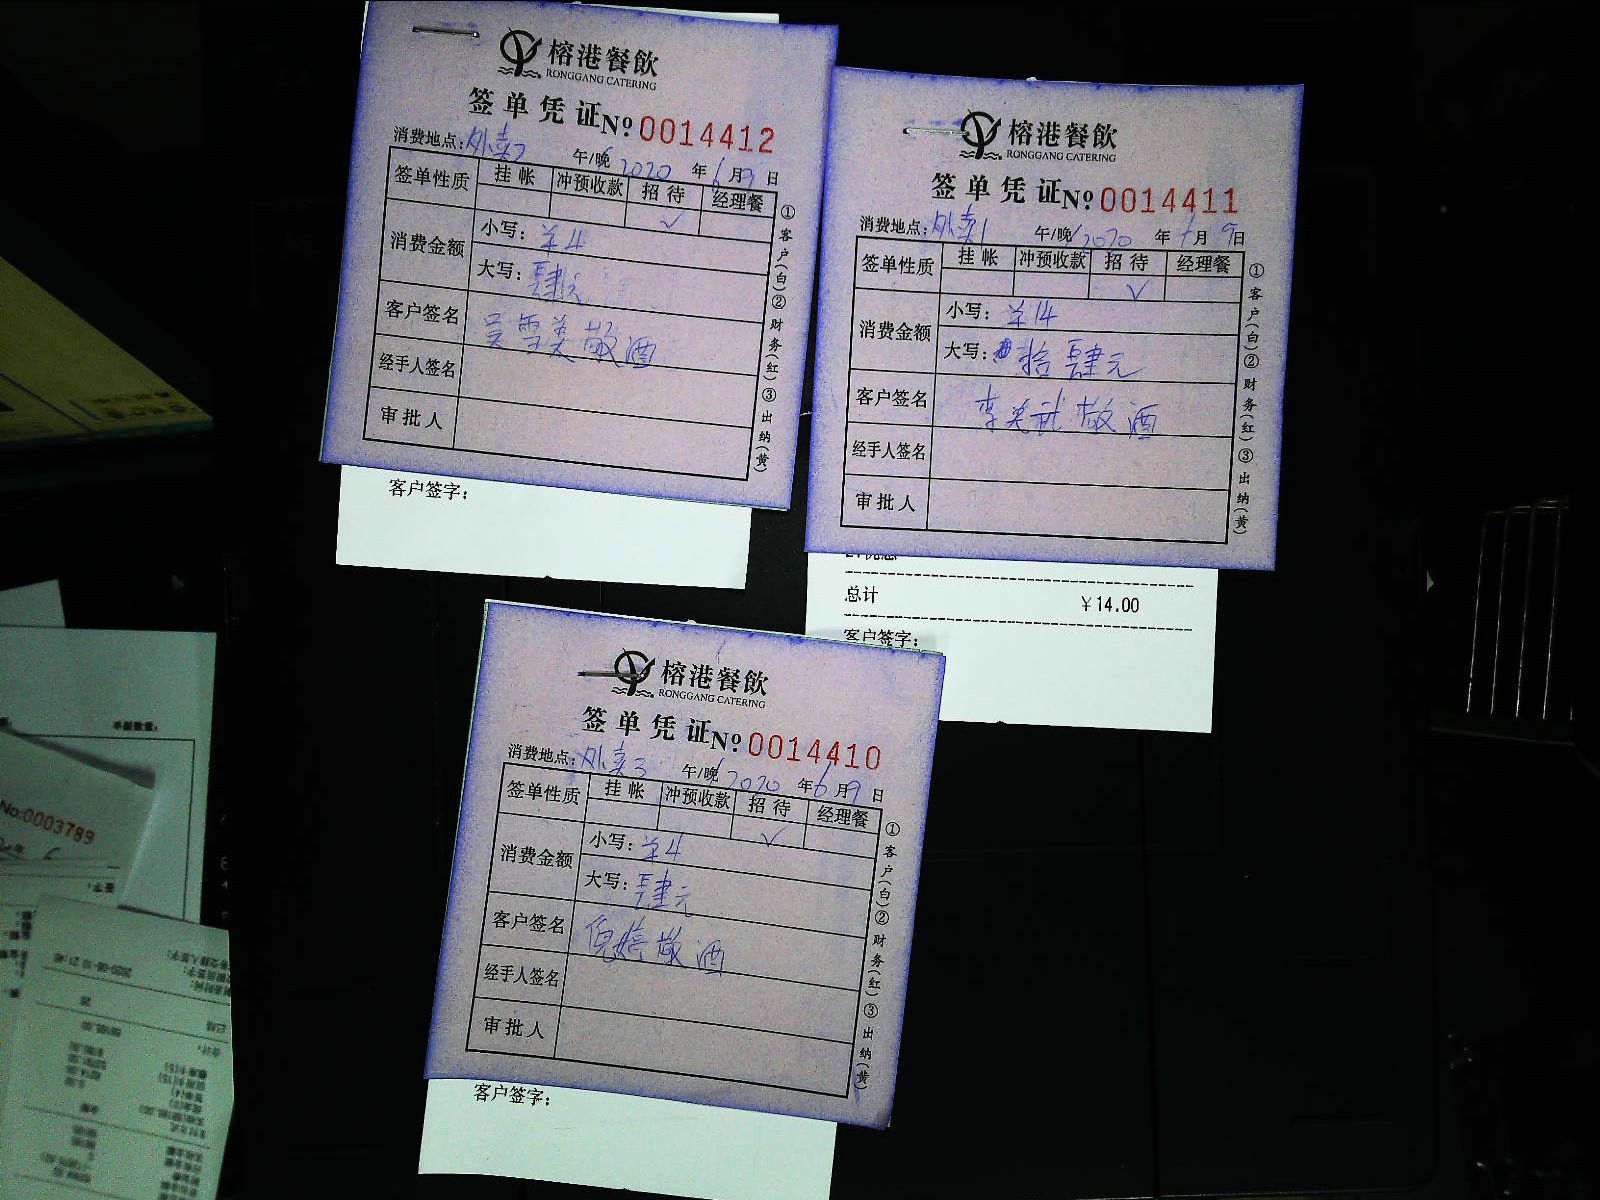 榕港餐飲
RONGGANG CATERING
签单凭证 No 0014412
消费地点:外卖2 午/晚 2020 年 6 月 9 日
签单性质 挂帐 冲预收款 招待 经理餐
√
消费金额 小写: ¥4
大写: 肆元
客户签名 吴雪美敬酒
经手人签名
审批人
①客户(白)②财务(红)③出纳(黄)
客户签字:
榕港餐飲
RONGGANG CATERING
签单凭证 No 0014411
消费地点:外卖1 午/晚 2020 年 月 9 日
签单性质 挂帐 冲预收款 招待 经理餐
√
消费金额 小写: ¥14
大写: 拾肆元
客户签名 李美武敬酒
经手人签名
审批人
①客户(白)②财务(红)③出纳(黄)
总计 ¥14.00
客户签字:
榕港餐飲
RONGGANG CATERING
签单凭证 No 0014410
消费地点:外卖3 午/晚 2020 年 6 月 9 日
签单性质 挂帐 冲预收款 招待 经理餐
√
消费金额 小写: ¥4
大写: 肆元
客户签名 倪婷敬酒
经手人签名
审批人
①客户(白)②财务(红)③出纳(黄)
客户签字:
No:0003789